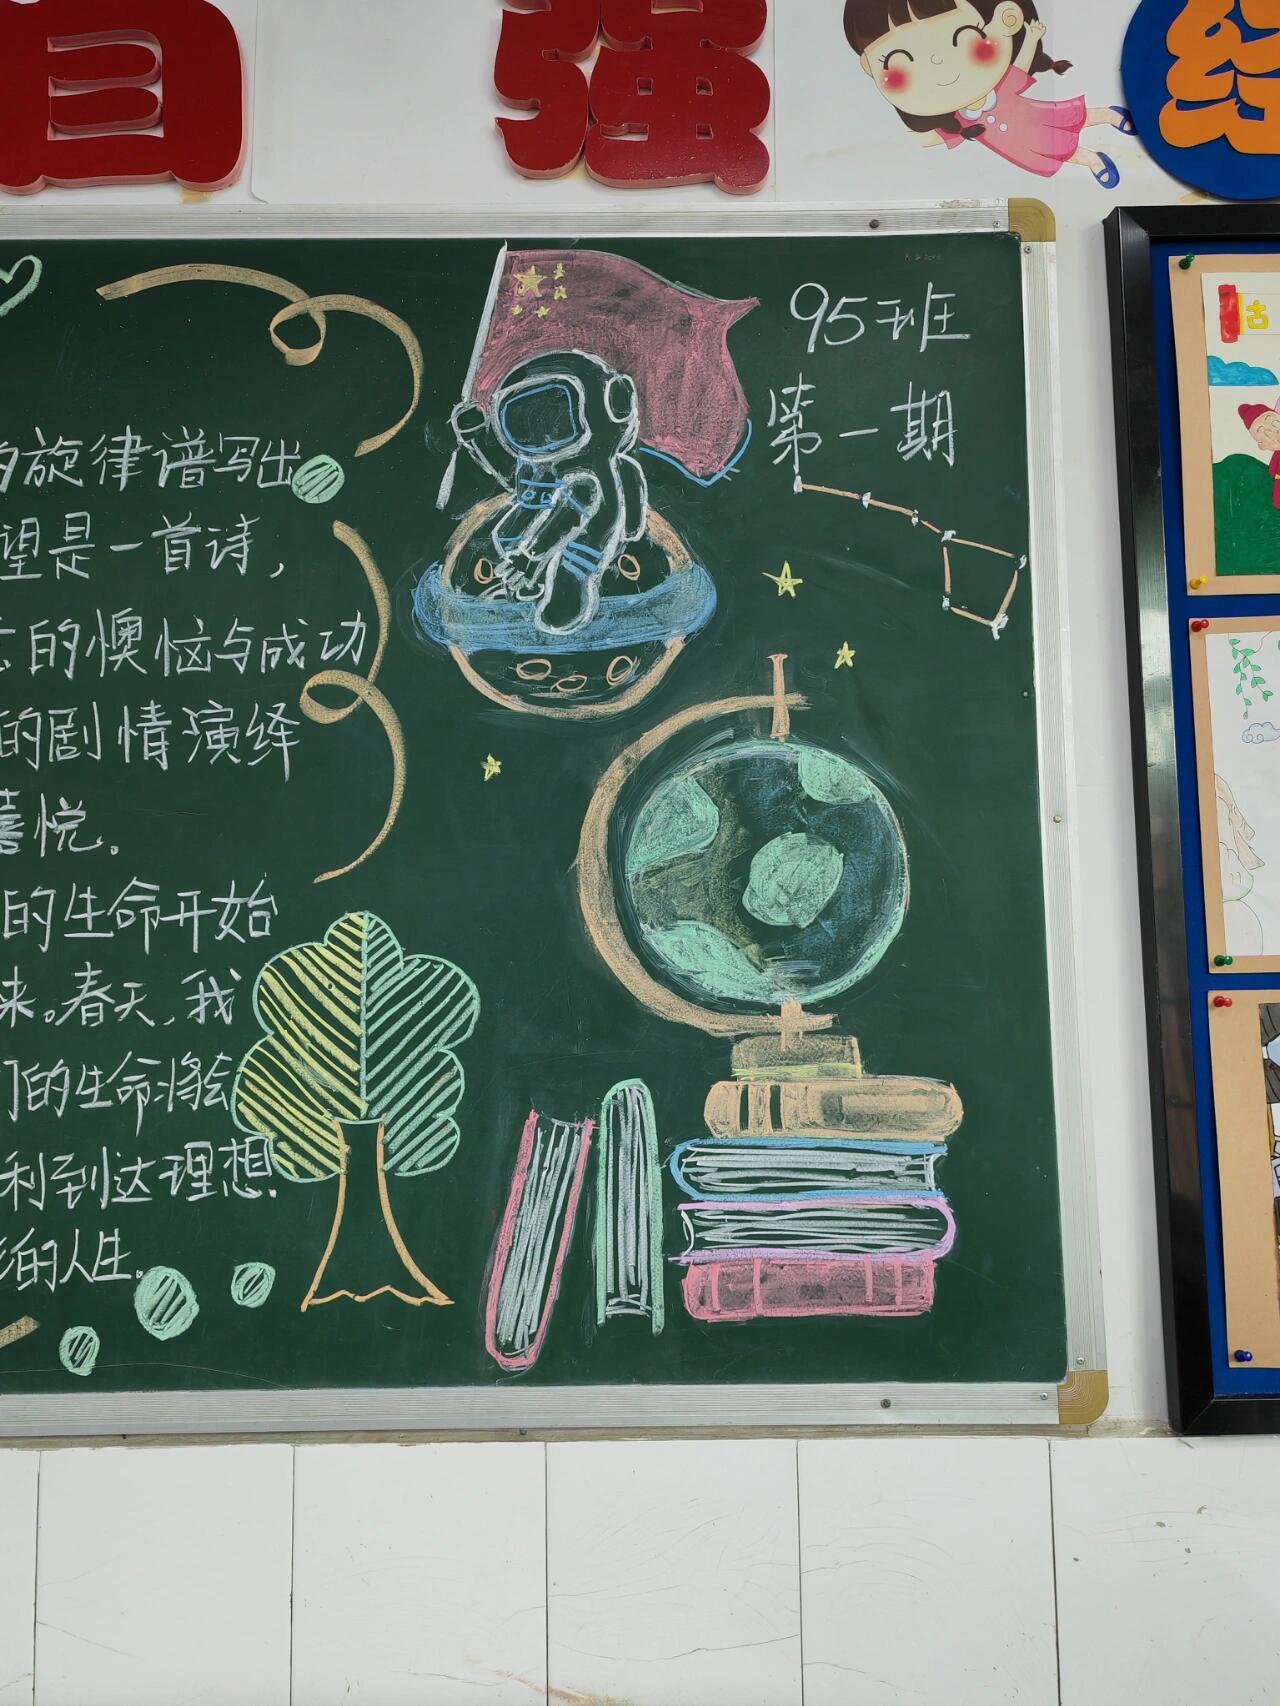 自强
95班
第一期
的旋律谱写出
望是一首诗，
的懊恼与成功
的剧情演绎
喜悦。
的生命开始
来。春天，我
们的生命将会
利到达理想
的人生。